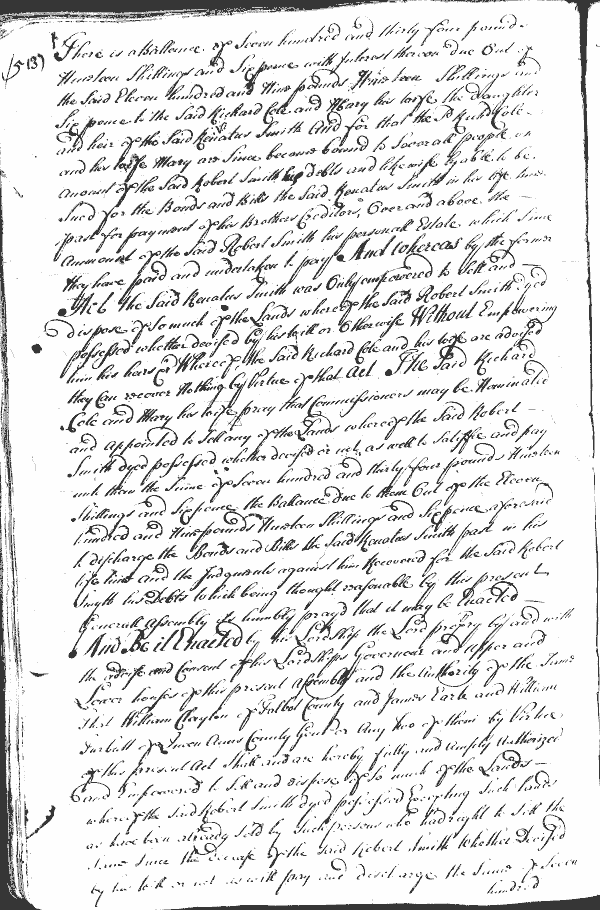 (513)
There is a Ballance of Seven hundred and thirty four pounds
Nineteen Shillings and Six pence with Interest thereon due Out of
the Said Eleven hundred and Nine pounds Nineteen Shillings and
Six pence to the Said Richard Cole and Mary his wife the daughter
and heir of the Said Renatus Smith And for that the Sd Richd Cole
and his wife Mary are Since become bound to Severall people on
Account of the Said Robert Smith his debts and likewise lyable to be
Sued for the Bonds and Bills the Said Renatus Smith in his life time
past for payment of his Brothers Creditors, Over and above the
Ammount of the Said Robert Smith his personall Estate which Sume
they have paid and undertaken to pay And whereas by the former
Act the Said Renatus Smith was Only empowered to Sell and
dispose of So much of the Lands whereof the Said Robert Smith dyed
possessed whether devised by his will or Otherwise Without Empowering
him his heirs &c Whereof the Said Richard Cole and his wife are advised
they Can recover Nothing by Virtue of that Act The Said Richard
Cole and Mary his wife pray that Commissioners may be Nominated
and appointed to Sell any of the Lands whereof the Said Robert
Smith dyed possessed whether devised or not, as well to Satisfie and pay
unto them the Sume of Seven hundred and thirty four pounds Nineteen
Shillings and Six pence the Ballance due to them Out of the Eleven
hundred and Nine pounds Nineteen Shillings and Six pence aforesaid
to discharge the Bonds and Bills the Said Renatus Smith past in his
life time and the Judgments against him Recovered for the Said Robert
Smyth his Debts which being thought reasonable by this present
Generall Assembly it is humbly prayd that it may be Enacted
And Be it Enacted by his Lordship the Lord propry by and with
the advise and Consent of his Lordships Governour and upper and
Lower houses of this present Assembly and the Authority of the Same
that William Clayton of Talbot County and James Earle and William
Turbutt of Queen Anns County Gent or Any two of them by Virtue
of this present Act Shall and are hereby fully and amply Authorized
and Empowered to Sell and dispose of So much of the Lands
whereof the Said Robert Smith dyed possessed Excepting Such Lands
as have been already Sold by Such persons who had right to Sell the
Same Since the decease of the Said Robert Smith Whether Devised
by his will or not as will pay and discharge the Sume of Seven
hundred